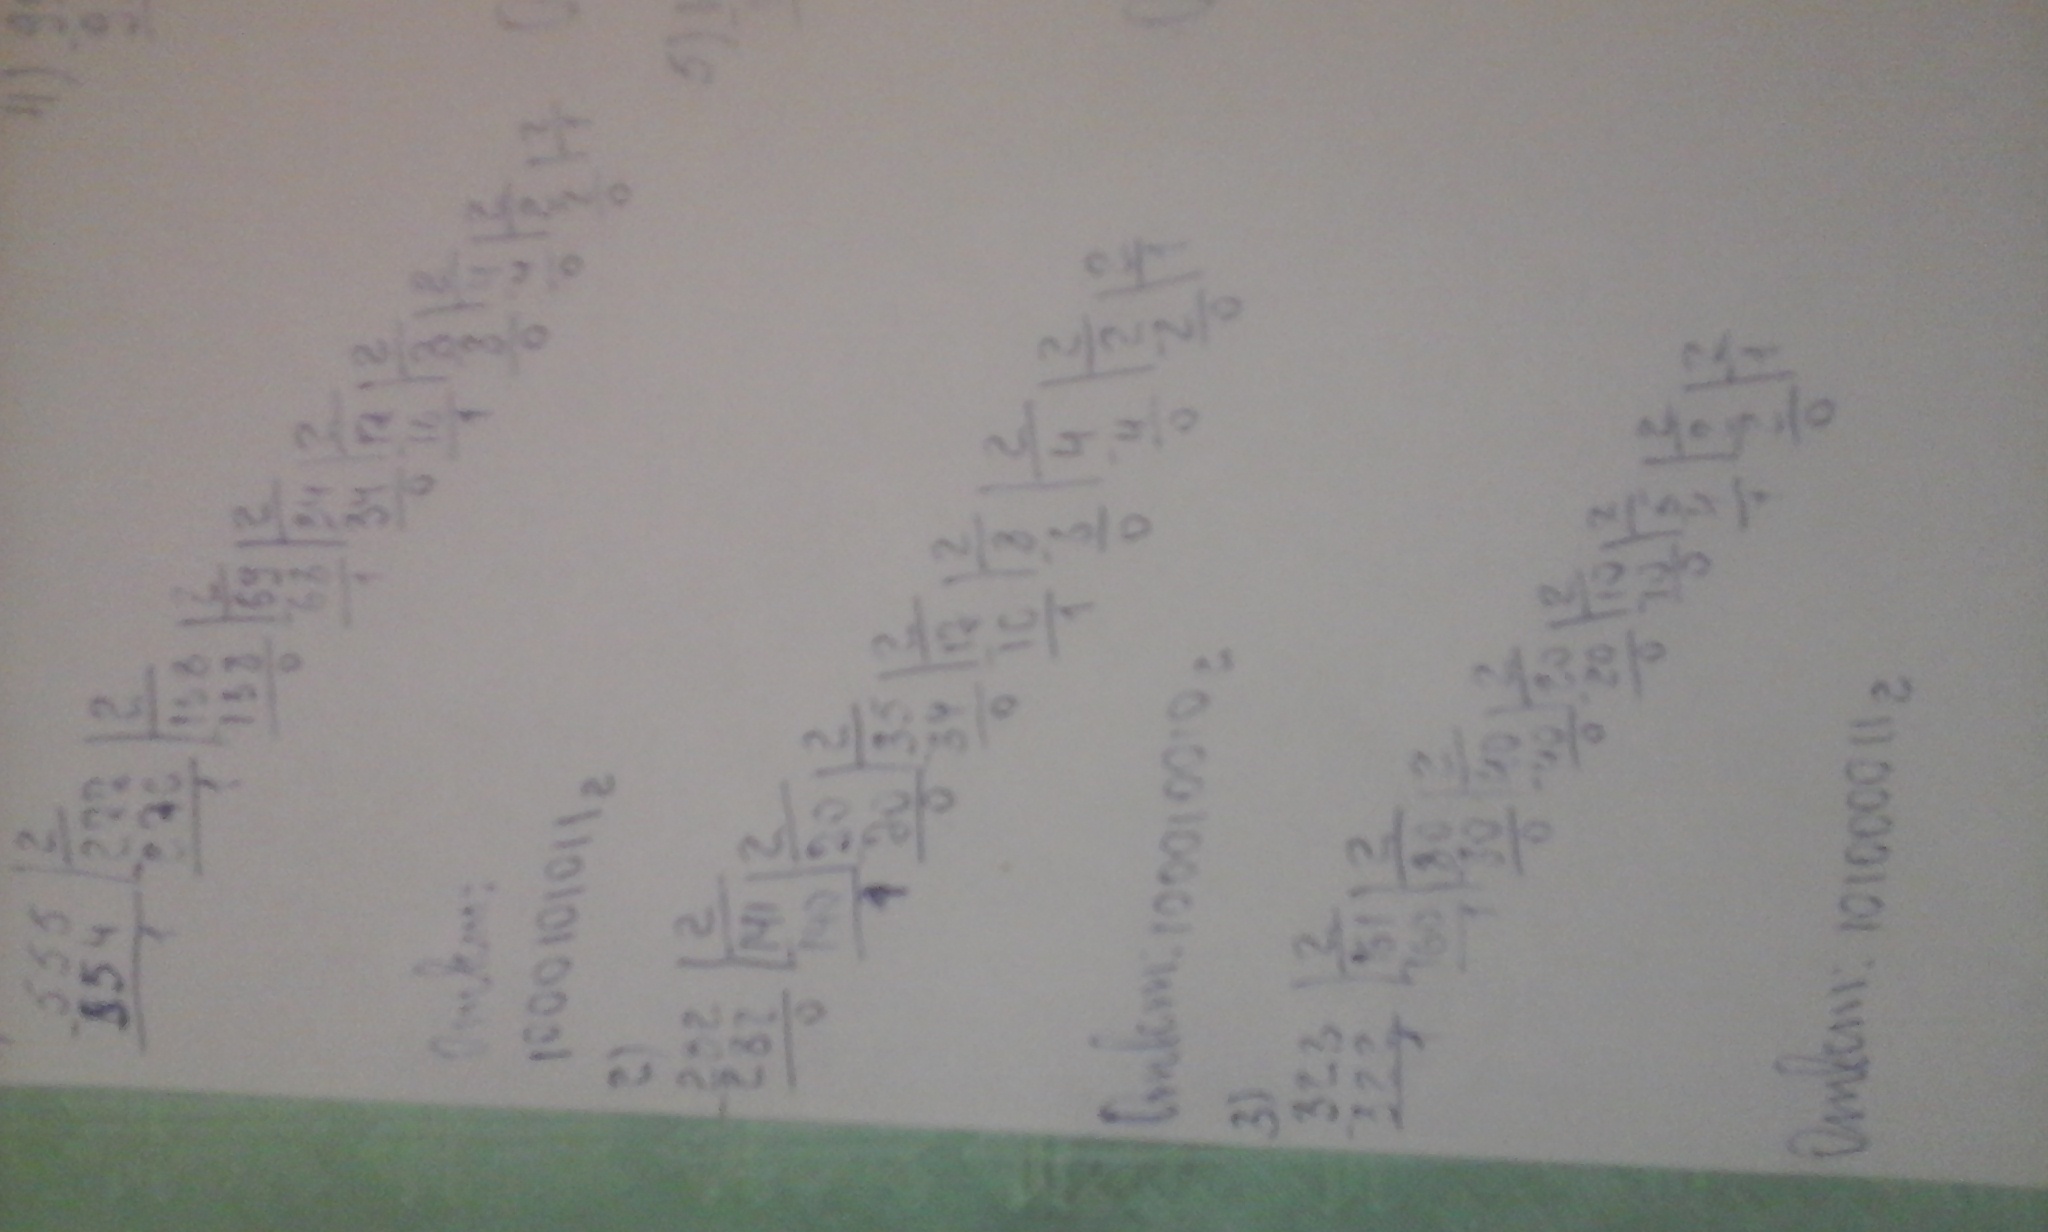 555 |2
554 |277 |2
1 276 |138 |2
1 138 |69 |2
0 68 |34 |2
1 34 |17 |2
0 16 |8 |2
1 8 |4 |2
0 4 |2 |2
0 2 |1
0
Ответ:
1000101011₂
2)
282 |2
282 |141 |2
0 140 |70 |2
1 70 |35 |2
0 34 |17 |2
0 16 |8 |2
1 8 |4 |2
0 4 |2 |2
0 2 |1
0
Ответ: 10001001010₂
3)
323 |2
322 |161 |2
1 160 |80 |2
1 80 |40 |2
0 40 |20 |2
0 20 |10 |2
0 10 |5 |2
0 |2 |2
1 2 |1
0
Ответ: 101000011₂
4)
5)